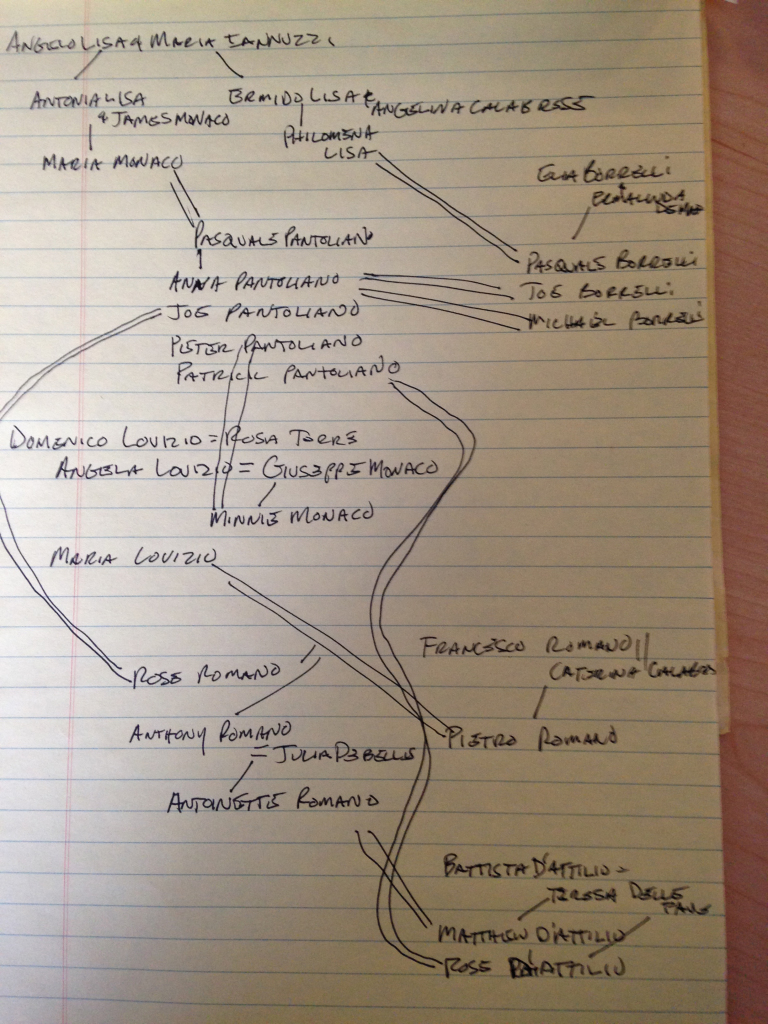 ANGELO LISA & MARIA IANNUZZI
ANTONIA LISA
& JAMES MONACO
ERMIDO LISA &
ANGELINA CALABRESE
PHILOMENA
LISA
MARIA MONACO
ELIA BORRELLI
&
ERMALINDA
PASQUALE PANTOLIANO
PASQUALE BORRELLI
ANNA PANTOLIANO
JOE BORRELLI
JOE PANTOLIANO
MICHAEL BORRELLI
PETER PANTOLIANO
PATRICK PANTOLIANO
DOMENICO LOVIZIO = ROSA TORRE
ANGELA LOVIZIO = GIUSEPPE MONACO
MINNIE MONACO
MARIA LOVIZIO
FRANCESCO ROMANO
CATERINA
ROSE ROMANO
ANTHONY ROMANO
= JULIA DEBELLIS
PIETRO ROMANO
ANTOINETTE ROMANO
BATTISTA D'ATTILIO =
TERESA DELLE
PANE
MATTHEW D'ATTILIO
ROSE D'ATTILIO